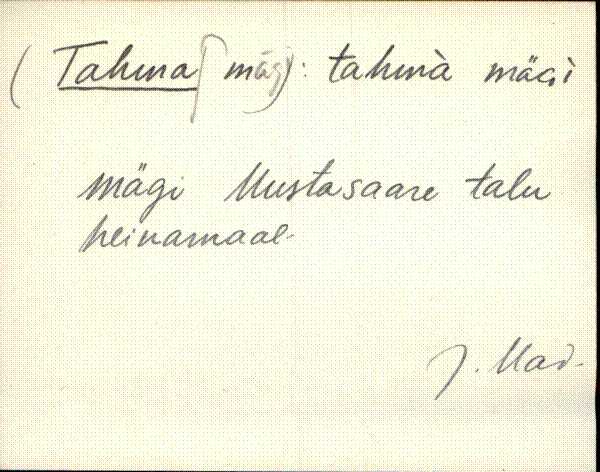 (Tahma mägi): tahmà mäg̀i
mägi Mustasaare talu
heinamaal.
J. Mad.